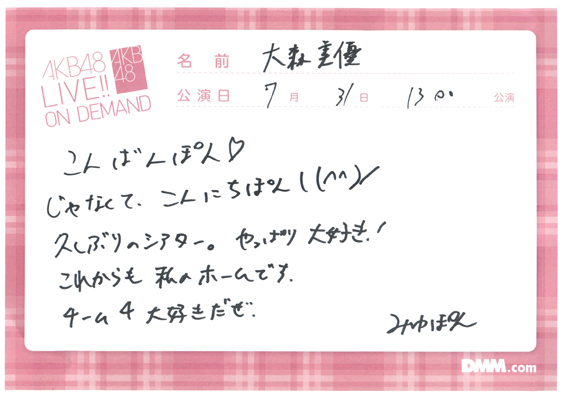 AKB48
LIVE!!
ON DEMAND
AKB
48
名前 大森美優
公演日 7月 31日 13:00 公演
こんばんぽん♡
じゃなくて、こんにちぽん\(^^)/
久しぶりのシアター。やっぱり大好き!
これからも私のホームです.
チーム4大好きだぜ.
みゆぽん
DMM.com